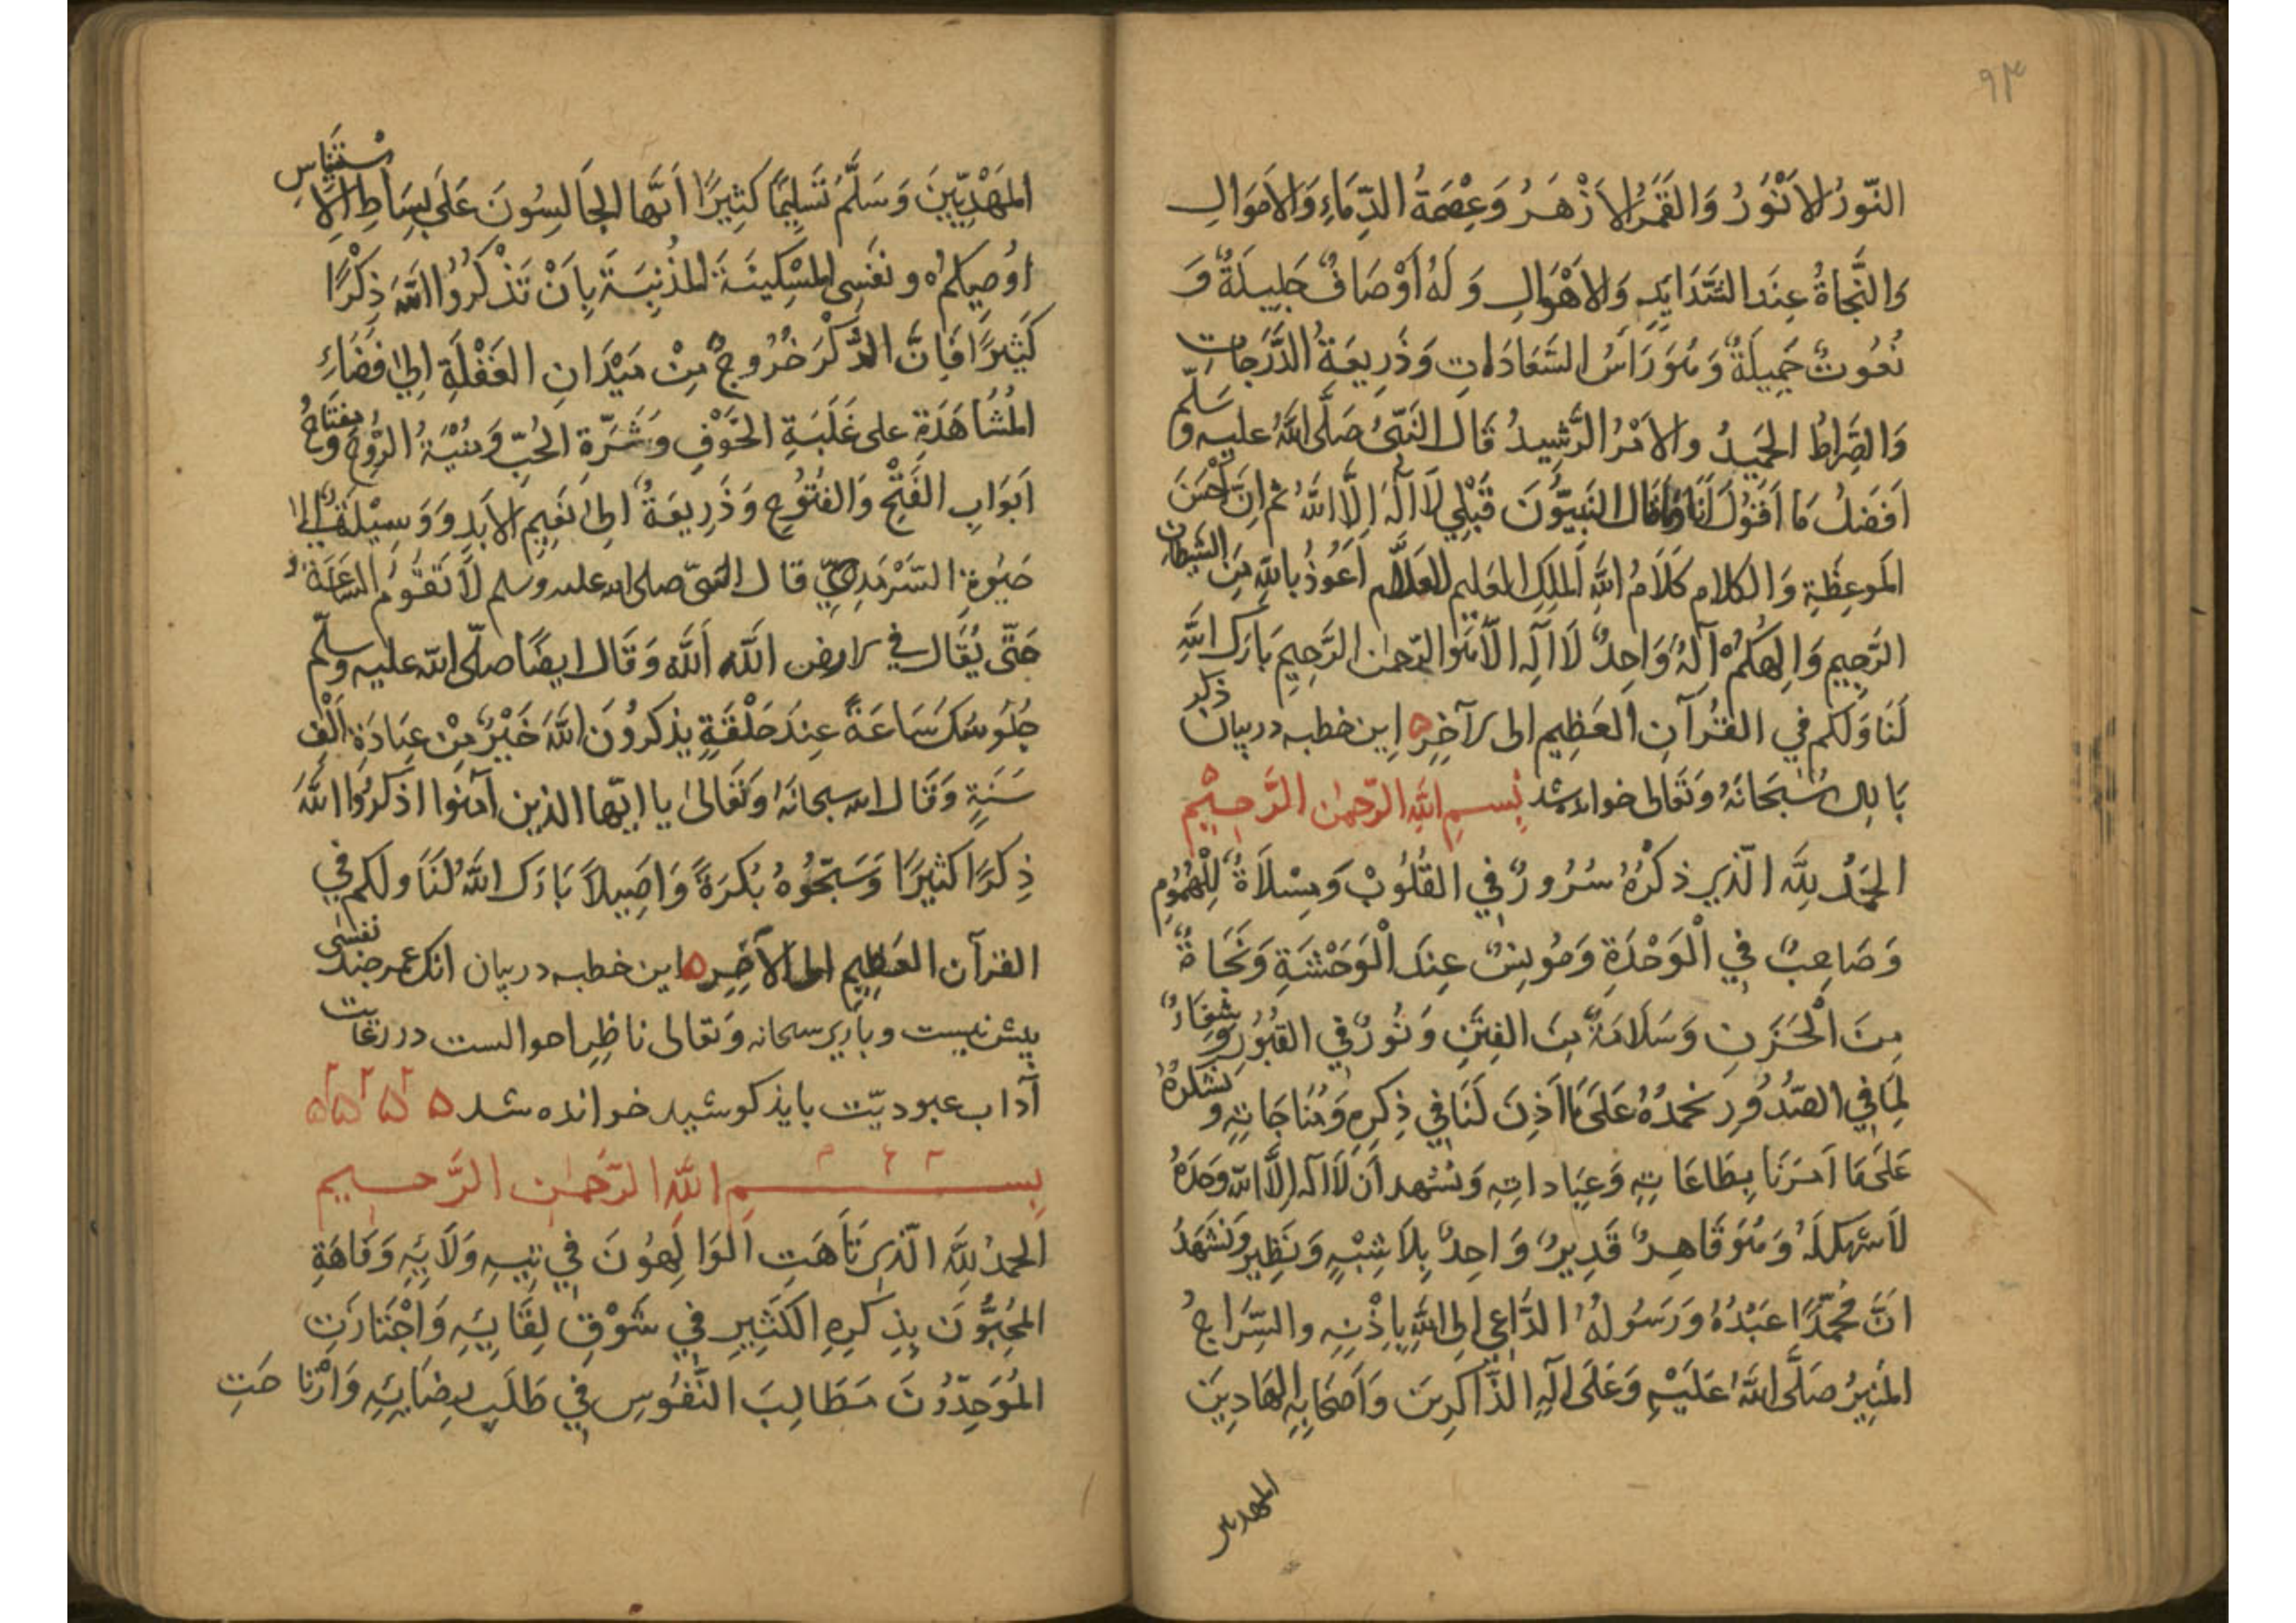 ٩٣
النّورُ الاَنْوَرُ وَالقَمَرُ الاَزْهَرُ وَعِصْمَةُ الدِّمَاءِ وَالاَموَالِ
وَالنَّجَاةُ عِندَ الشَّدَايِدِ وَالاَهْوَالِ وَلَهُ اَوْصَافٌ جَلِيلَةٌ وَ
نُعُوتٌ جَمِيلَةٌ وَهُوَ رَاَسُ السَّعَادَاتِ وَذَرِيعَةُ الدَّرَجَاتِ
وَالصِّرَاطُ الحَمِيدُ والاَمْرُ الرَّشِيدُ قَالَ النَّبِيُّ صَلَّى اللهُ عليه وَسَلّم
اَفضَلُ مَا اَقُولُ اَنَا وَمَا قَالَ النَّبِيُّونَ قَبْلِي لَا آلٰهَ اِلَّا اللهُ ثم اِنَّ اَحْسَنَ
المَوعِظَةِ وَالكلامِ كَلَامُ اللهِ المَلِكِ العَلِيم العَلَّام اَعُوذُ بِاللهِ مِنَ الشيطان
الرَّجِيمِ وَاِلٰهُكُمْ آِلٰهٌ وَاحِدٌ لَا آلٰهَ اِلَّا هُوَ الرّحمٰن الرَّحِيمِ بَارَكَ اللهِ
لَنَا وَلَكم فِي القُرآنِ العَظِيم الى آخِرِه اين خطبه در بيان ذكر
بَارى سُبحَانَهُ وَتَعَالى خوانده شد بِسمِ اللهِ الرّحمٰن الرَّحِيْمِ
الحَمْدُ لِلَّهِ الّذِي ذكْرُهُ سُرُورٌ فِي القُلُوبْ وَسِلَاةٌ لِلْهُمُومِ
وَصَاحِبٌ فِي الْوَحْدَةِ وَمُونِسٌ عِندَ الْوَحْشَةِ وَنَجَاةٌ
مِنَ الْحَزَنِ وَسَلَامَةٌ مِنَ الفِتَنِ وَنُورٌ فِي القُبُورِ وَشِفَاءٌ
لِمَا فِي الصُّدُورِ نحمدُهُ عَلَى مَا اَذِنَ لَنَا فِي ذِكرِهِ وَمُنَاجَاتِهِ وَنَشكرُهُ
عَلَى مَا اَمَرَنَا بِطَاعَاتِهِ وَعِبَاداتِهِ وَنشهد اَن لَا آلٰه اِلَّا الله وَحدَهُ
لَا شريكَ لَهُ وَهُوَ قَاهِرٌ قَدِيرٌ وَاحِدٌ بِلَا شِبْهٍ وَنَظِيرٍ وَنَشهَدُ
اَنَّ مُحمَّدًا عَبْدُهُ وَرَسُولُهُ الدَّاعِي اِلى اللهِ بِاِذْنِهِ والسِّرَاجُ
المُنِيرُ صَلَّى اللهُ عَلَيْهِ وَعَلَى آلِهِ الذَّاكِرِينَ وَاَصحَابِهِ الهَادِيِنَ
المهديين
المَهْدِيِّينَ وَسَلَّمَ تَسَلِيمًا كَثِيرًا اَيَّها الجَالِسُونَ عَلَى بِسَاطِ الاِسْتِينَاسِ
اُوصِيكُمْ ونفسِي المِسكِينَةَ المُذنِبَةَ بِاَنْ تَذْكُرُوا اللهَ ذِكْرًا
كَثِيرًا فَاِنَّ الذِّكْرَ خُرُوجٌ مِنْ مَيْدَانِ الغَفْلَةِ اِلى فضَاءِ
المُشَاهَدَةِ على غَلَبَةِ الخَوْفِ وَشَرّةِ الحُبِّ وَمُنْيَةُ الرُّوحِ وَمِفتَاحُ
اَبوَابِ الفَتْحِ وَالفُتُوحِ وَذَرِيعَةٌ اِلى نَعِيمِ الاَبدِ وَوَسِيْلَةٌ اِلى
حَيٰوةِ السَّرْمَدِيِّ قَالَ النبيّ صلى الله عليه وسلم لَا تَقُومُ السَّاعَةُ
حَتّى يُقَال فِي الارض اَلله اَلله وَقَال ايضًا صلّى الله عليه وسلّم
جُلُوسُكَ سَاعَةً عِندَ حَلْقَةٍ يذكرُونَ اللهَ خَيْرٌ مِنْ عِبَادَةِ اَلْف
سَنَةٍ وَقَال الله سبحانَهُ وَتَعَالىٰ يا ايّها الذين آمَنوا اذكُرُوا اللهَ
ذِكرًا كثِيرًا وَسَبِّحُوهُ بُكرَةً وَاَصِيلاً بَارَكَ اللهُ لَنَا ولكم فِي
القرآن العَظِيم الى الآخِره اين خطبه در بيان انك عمر چند نفسى
بيش نيست وبارى سبحانه وَتعالى ناظِر احوالست در رعايت
آداب عبوديّت بايد كوشيد خوانده شد
بِسـمِ اللهِ الرَّحمٰن الرَّحـيم
الحمدُ لِلَّهِ الّذِي تَاَهَتِ الْوَالِهُونَ فِي تِيهِ وَلَايِهِ وَفَاهَةِ
المُحِبُّونَ بِذِكرِهِ الكَثِيرِ فِي شَوْقِ لِقَايِهِ وَاجْتَازَتِ
المُوَحِّدُونَ مَطَالِبَ النُّفُوسِ فِي طَلَبِ رِضَايِهِ وَارْتَاحَتِ